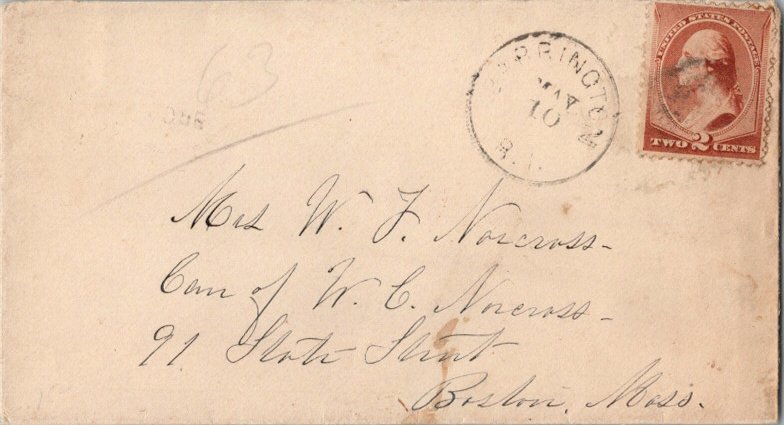 63
BARRINGTON
MAY
10
R.I.
UNITED STATES POSTAGE
TWO 2 CENTS
Mrs W. F. Norcross-
Care of W. C. Norcross-
91 State Street
Boston, Mass.